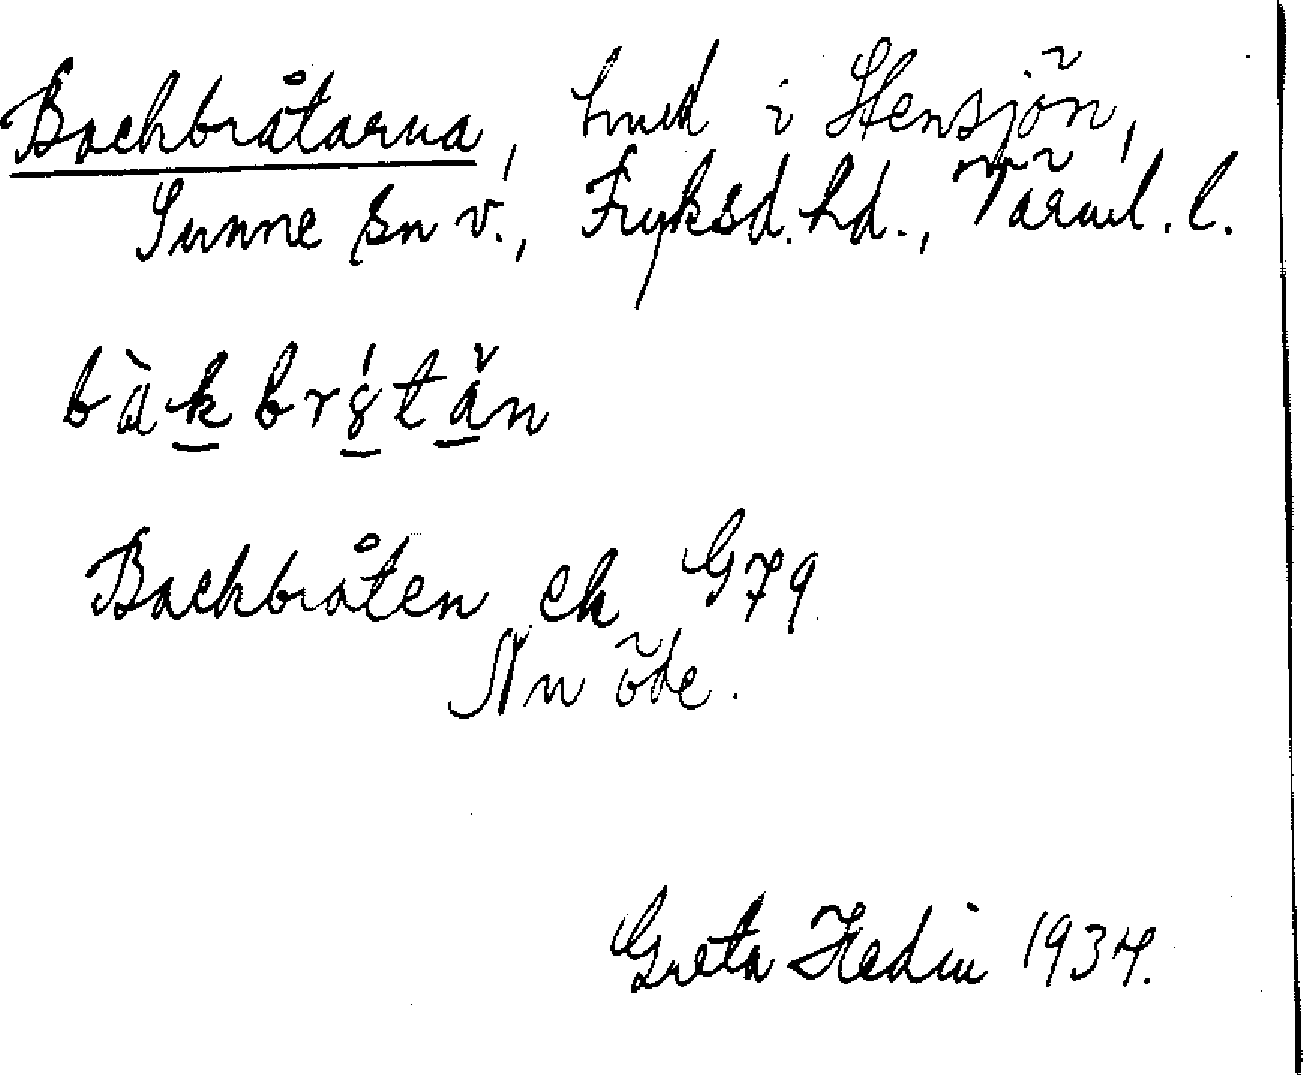 Backbråtarna, hmd i Stensjön,
Sunne sn v., Fryksd. hd., Värml. l.
bàkbrstån
Backbråten ek G79
Nu öde.
Greta Hedin 1934.